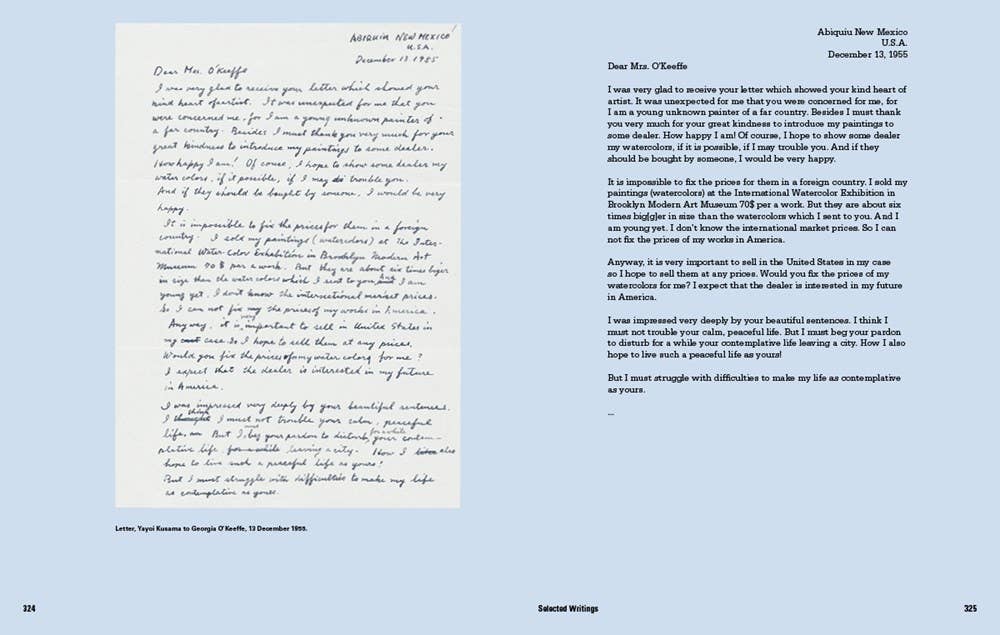 ABIQUIU NEW MEXICO
U.S.A.
December 13 1955
Dear Mrs. O'Keeffe
I was very glad to receive your letter which showed your
kind heart of artist. It was unexpected for me that you
were concerned me, for I am a young unknown painter of
a far country. Besides I must thank you very much for your
great kindness to introduce my paintings to some dealer.
How happy I am! Of couse, I hope to show some dealer my
water colors, if it possible, if I may trouble you.
And if they should be bought by someone, I would be very
happy.
It is impossible to fix the prices for them in a foreign
country. I sold my paintings (watercolors) at The Inter-
national Water-Color Exhibition in Brooklyn Modern Art
Museum 70 $ par a work. But they are about six times biger
in size than the water colors which I sent to you, And I am
young yet. I don't know the international market prices.
So I can not fix the prices of my works in America.
Anyway, it is very important to sell in United States in
my case. So I hope to sell them at any prices.
Would you fix the prices of my water colors for me?
I expect that the dealer is interested in my future
in America.
I was impressed very deeply by your beautiful sentences.
I think I must not trouble your calm, peaceful
life, But I must beg your pardon to disturb for a while your contem-
plative life, leaving a city. How I also
hope to live such a peaceful life as yours!
But I must struggle with difficulties to make my life
as contemplative as yours.
Letter, Yayoi Kusama to Georgia O'Keeffe, 13 December 1955.
324
Abiquiu New Mexico
U.S.A.
December 13, 1955
Dear Mrs. O'Keeffe
I was very glad to receive your letter which showed your kind heart of
artist. It was unexpected for me that you were concerned for me, for
I am a young unknown painter of a far country. Besides I must thank
you very much for your great kindness to introduce my paintings to
some dealer. How happy I am! Of course, I hope to show some dealer
my watercolors, if it is possible, if I may trouble you. And if they
should be bought by someone, I would be very happy.
It is impossible to fix the prices for them in a foreign country. I sold my
paintings (watercolors) at the International Watercolor Exhibition in
Brooklyn Modern Art Museum 70$ per a work. But they are about six
times big[g]er in size than the watercolors which I sent to you. And I
am young yet. I don't know the international market prices. So I can
not fix the prices of my works in America.
Anyway, it is very important to sell in the United States in my case
so I hope to sell them at any prices. Would you fix the prices of my
watercolors for me? I expect that the dealer is interested in my future
in America.
I was impressed very deeply by your beautiful sentences. I think I
must not trouble your calm, peaceful life. But I must beg your pardon
to disturb for a while your contemplative life leaving a city. How I also
hope to live such a peaceful life as yours!
But I must struggle with difficulties to make my life as contemplative
as yours.
...
Selected Writings
325